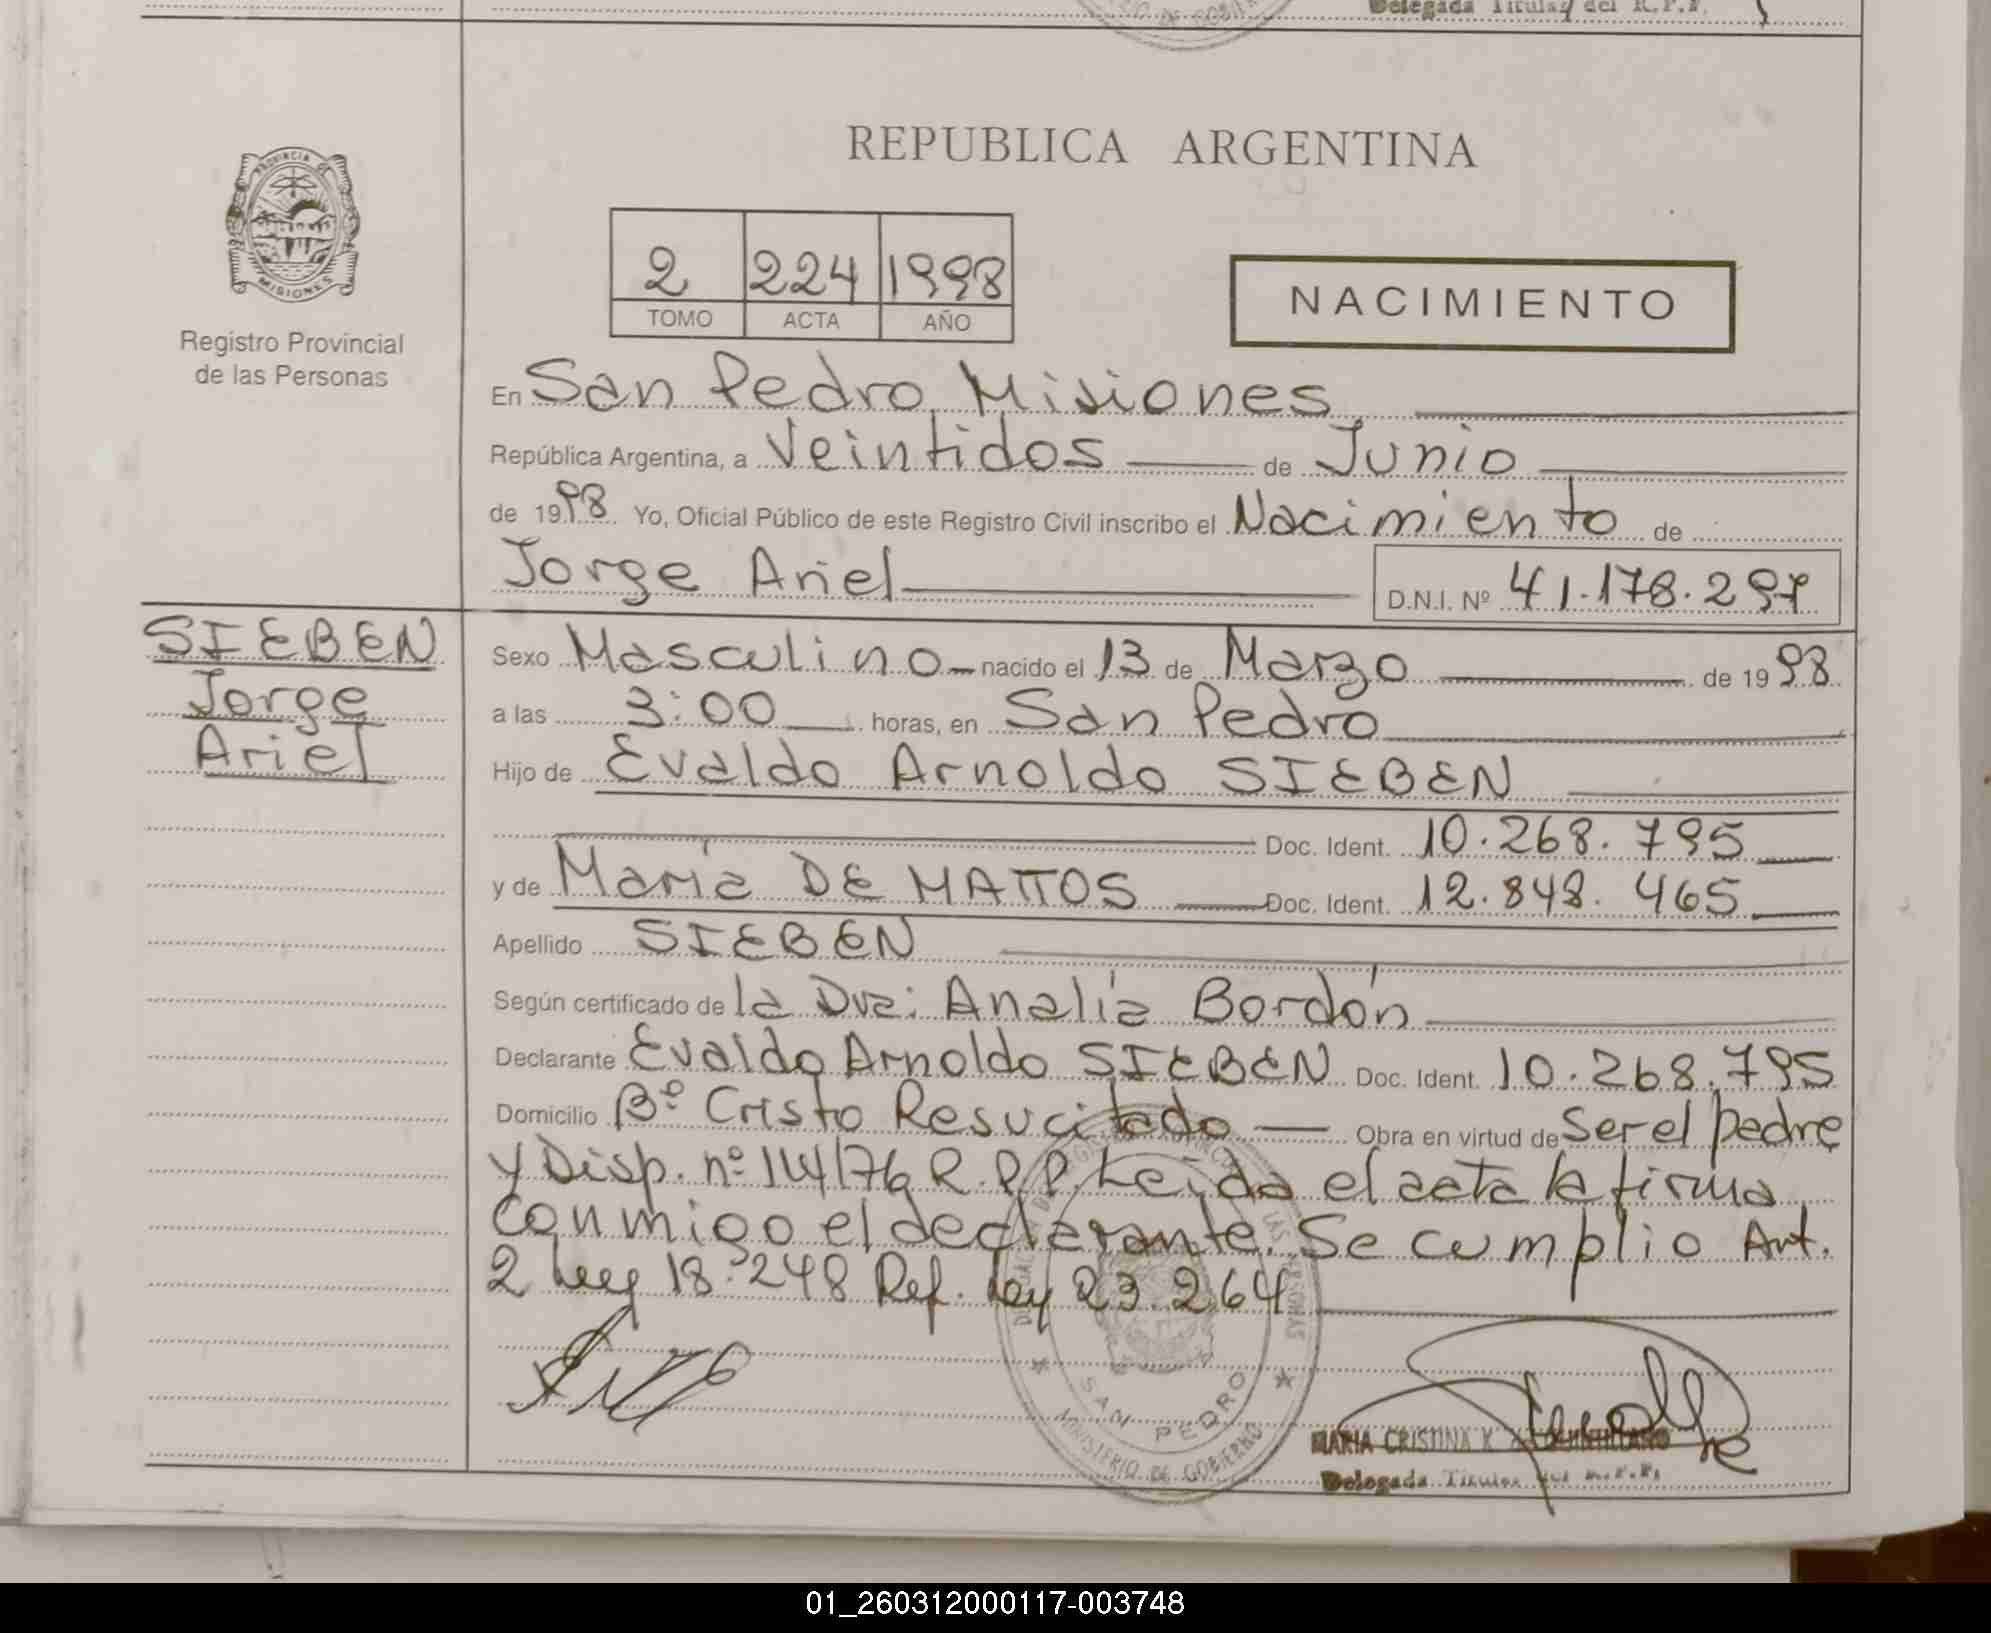 Delegada Titular del R.P.P.
REPUBLICA ARGENTINA
PROVINCIA DE
MISIONES
Registro Provincial
de las Personas
2 224 1998
TOMO ACTA AÑO
NACIMIENTO
En San Pedro, Misiones
República Argentina, a Veintidos de Junio
de 1998 Yo, Oficial Público de este Registro Civil inscribo el Nacimiento de
Jorge Ariel D.N.I. Nº 41.178.297
SIEBEN
Jorge
Ariel
Sexo Masculino nacido el 13 de Marzo de 1998
a las 3:00 horas, en San Pedro
Hijo de Evaldo Arnoldo SIEBEN
Doc. Ident. 10.268.795
y de María DE MATTOS Doc. Ident. 12.848.465
Apellido SIEBEN
Según certificado de la Dra: Analía Bordón
Declarante Evaldo Arnoldo SIEBEN Doc. Ident. 10.268.795
Domicilio Bº Cristo Resucitado Obra en virtud de Ser el padre
y Disp. nº 114/76 R.P.P. Leída el acta la firma
conmigo el declarante. Se cumplio Art.
2 Ley 18.248 Ref. Ley 23.264
SAN PEDRO
MINISTERIO DE GOBIERNO
MARIA CRISTINA K.
Delegada Titular del R.P.P.
01_260312000117-003748